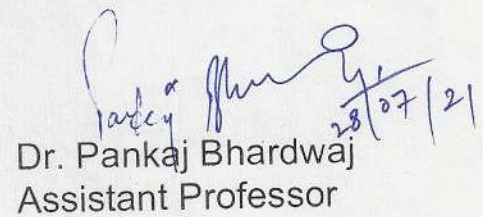 Pankaj
28/07/21
Dr. Pankaj Bhardwaj
Assistant Professor